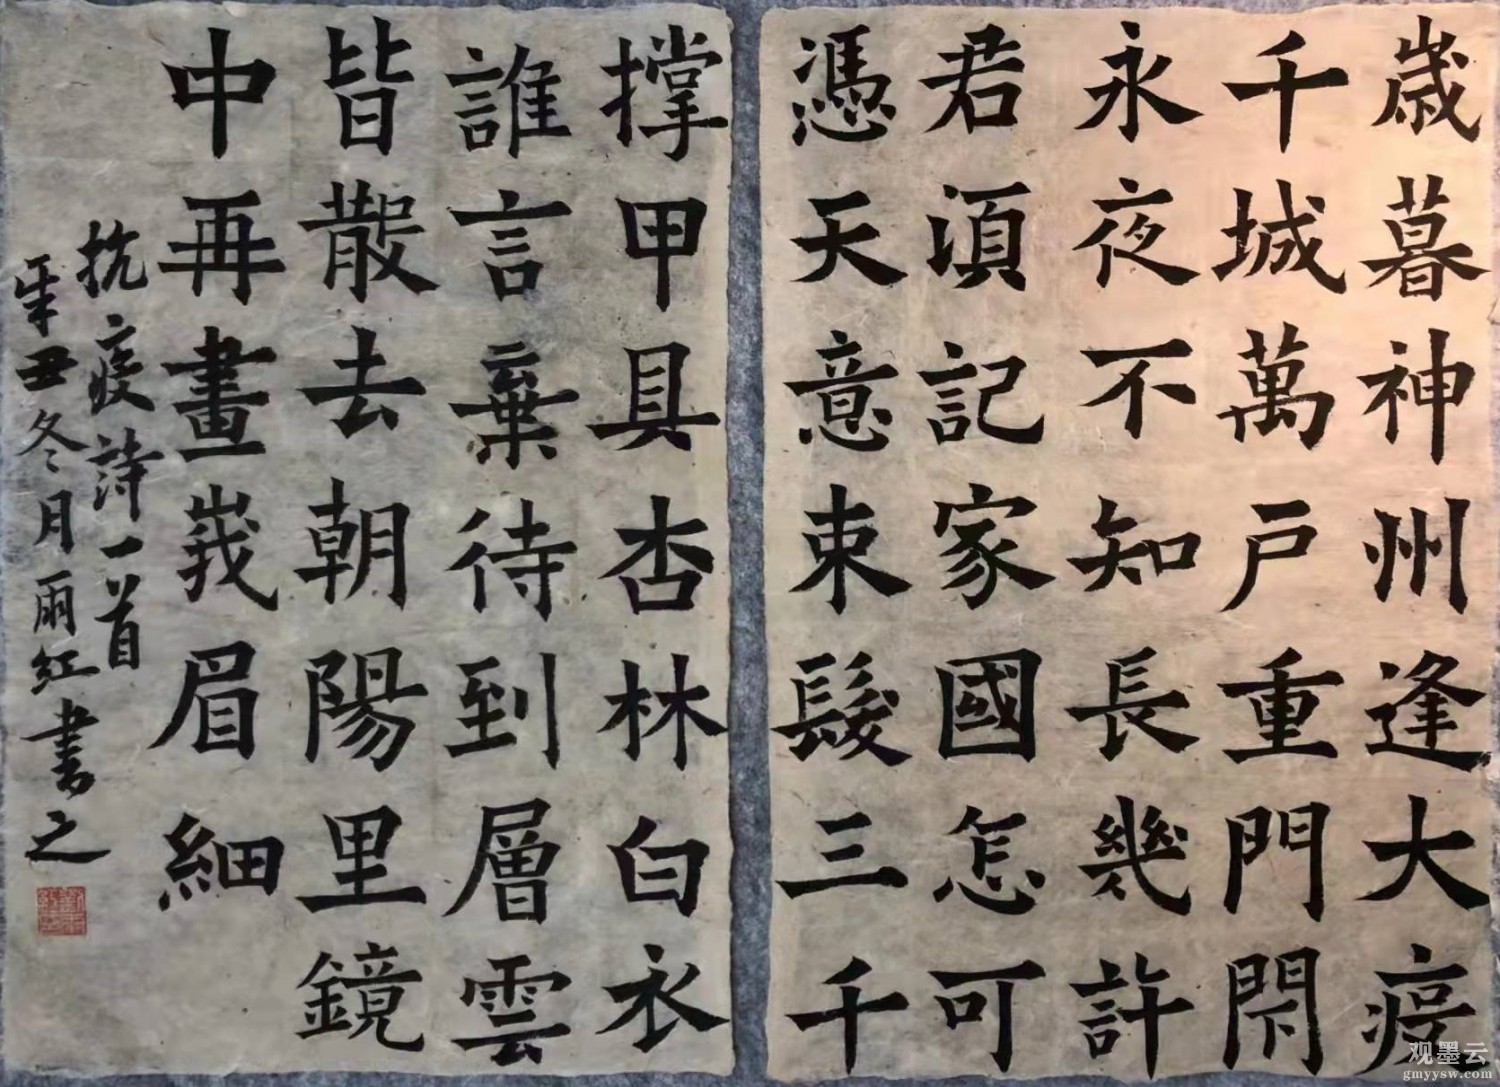 歲暮神州逢大疫
千城萬戶重門閇
永夜不知長幾許
君須記家國怎可
憑天意束髮三千
撐甲具杏林白衣
誰言棄待到層雲
皆散去朝陽里鏡
中再畫峩眉細
抗疫詩一首
辛丑冬月雨紅書之
观墨云
gmyysw.com